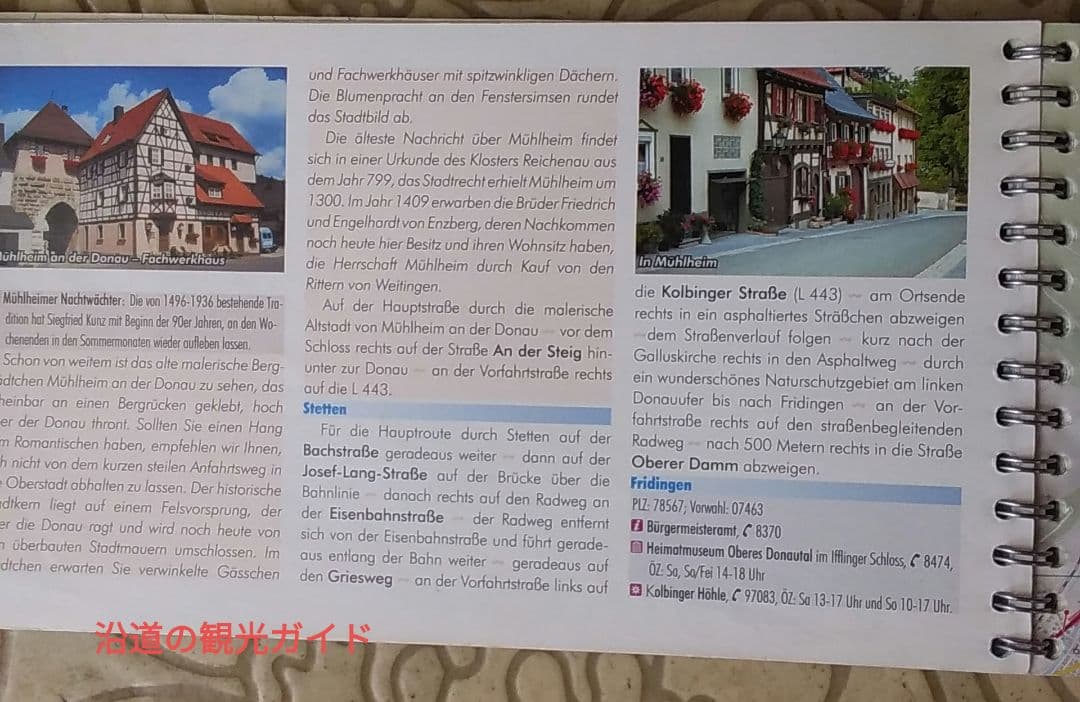 ühlheim an der Donau – Fachwerkhaus
Mühlheimer Nachtwächter: Die von 1496-1936 bestehende Tra-
dition hat Siegfried Kunz mit Beginn der 90er Jahren, an den Wo-
chenenden in den Sommermonaten wieder aufleben lassen.
Schon von weitem ist das alte malerische Berg-
ädtchen Mühlheim an der Donau zu sehen, das
heinbar an einen Bergrücken geklebt, hoch
er der Donau thront. Sollten Sie einen Hang
m Romantischen haben, empfehlen wir Ihnen,
h nicht von dem kurzen steilen Anfahrtsweg in
e Oberstadt abhalten zu lassen. Der historische
dtkern liegt auf einem Felsvorsprung, der
er die Donau ragt und wird noch heute von
n überbauten Stadtmauern umschlossen. Im
dtchen erwarten Sie verwinkelte Gässchen
und Fachwerkhäuser mit spitzwinkligen Dächern.
Die Blumenpracht an den Fenstersimsen rundet
das Stadtbild ab.
Die älteste Nachricht über Mühlheim findet
sich in einer Urkunde des Klosters Reichenau aus
dem Jahr 799, das Stadtrecht erhielt Mühlheim um
1300. Im Jahr 1409 erwarben die Brüder Friedrich
und Engelhardt von Enzberg, deren Nachkommen
noch heute hier Besitz und ihren Wohnsitz haben,
die Herrschaft Mühlheim durch Kauf von den
Rittern von Weitingen.
Auf der Hauptstraße durch die malerische
Altstadt von Mühlheim an der Donau ~ vor dem
Schloss rechts auf der Straße An der Steig hin-
unter zur Donau ~ an der Vorfahrtstraße rechts
auf die L 443.
Stetten
Für die Hauptroute durch Stetten auf der
Bachstraße geradeaus weiter ~ dann auf der
Josef-Lang-Straße auf der Brücke über die
Bahnlinie ~ danach rechts auf den Radweg an
der Eisenbahnstraße ~ der Radweg entfernt
sich von der Eisenbahnstraße und führt gerade-
aus entlang der Bahn weiter ~ geradeaus auf
den Griesweg ~ an der Vorfahrtstraße links auf
In Mühlheim
die Kolbinger Straße (L 443) ~ am Ortsende
rechts in ein asphaltiertes Sträßchen abzweigen
~ dem Straßenverlauf folgen ~ kurz nach der
Galluskirche rechts in den Asphaltweg ~ durch
ein wunderschönes Naturschutzgebiet am linken
Donauufer bis nach Fridingen ~ an der Vor-
fahrtstraße rechts auf den straßenbegleitenden
Radweg ~ nach 500 Metern rechts in die Straße
Oberer Damm abzweigen.
Fridingen
PLZ: 78567; Vorwahl: 07463
i Bürgermeisteramt, ✆ 8370
Heimatmuseum Oberes Donautal im Ifflinger Schloss, ✆ 8474,
ÖZ: Sa, So/Fei 14-18 Uhr
Kolbinger Höhle, ✆ 97083, ÖZ: Sa 13-17 Uhr und So 10-17 Uhr.
沿道の観光ガイド